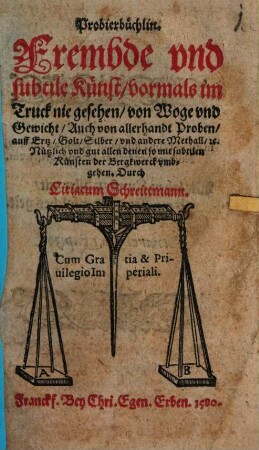 Probierbüchlin.
Frembde vnd
subtile Künst/vormals im
Truck nie gesehen/von Woge vnd
Gewicht/Auch von allerhandt Proben/
auff Ertz/Golt/Silber/vnd andere Methall/ꝛc.
Nützlich vnd gut allen denen so mit subtilen
Künsten der Bergkwerck vmb-
gehen. Durch
Ciriacum Schreittmann.
Cum Gra tia & Pri-
uilegio Im periali.
A B
Franckf. Bey Chri. Egen. Erben. 1580.